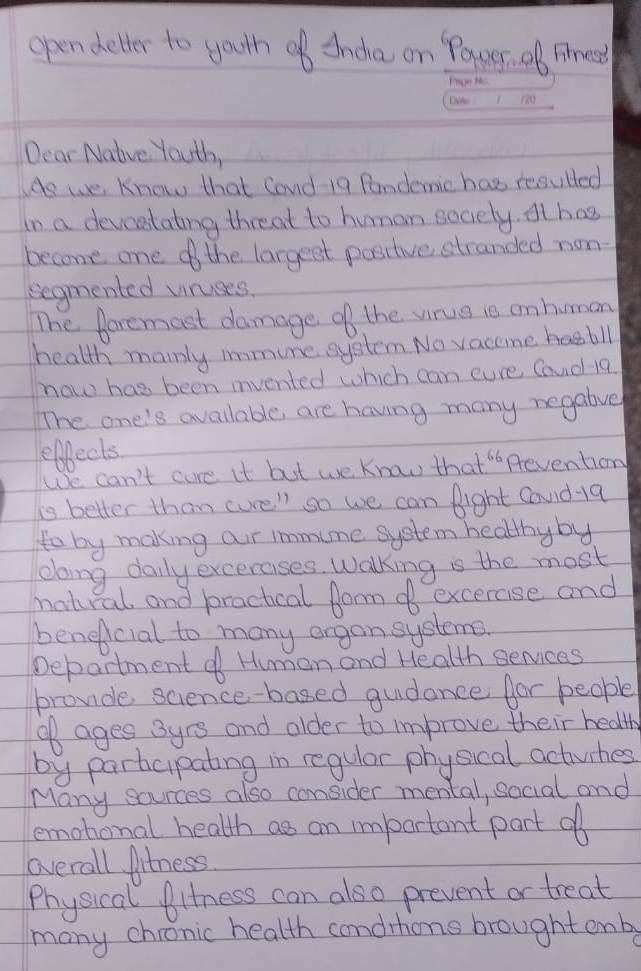 Open Letter to youth of India on "Power of Fitness"
Page No.
Date: / /20
Dear Native Youth,
As we know that Covid-19 Pandemic has resulted
in a devastating threat to human society. It has
become one of the largest positive stranded non-
segmented viruses.
The foremost damage of the virus is on human
health mainly immune system. No vaccine has till
now has been invented which can cure Covid-19.
The one's available are having many negative
effects.
We can't cure it but we know that "Prevention
is better than cure" so we can fight Covid-19
by making our immune system healthy by
doing daily excercises. Walking is the most
natural and practical form of excercise and
beneficial to many organ systems.
Department of Human and Health Services
provide science-based guidance for people
of ages 3yrs and older to improve their health
by participating in regular physical activities.
Many sources also consider mental, social and
emotional health as an important part of
overall fitness.
Physical fitness can also prevent or treat
many chronic health conditions brought on by